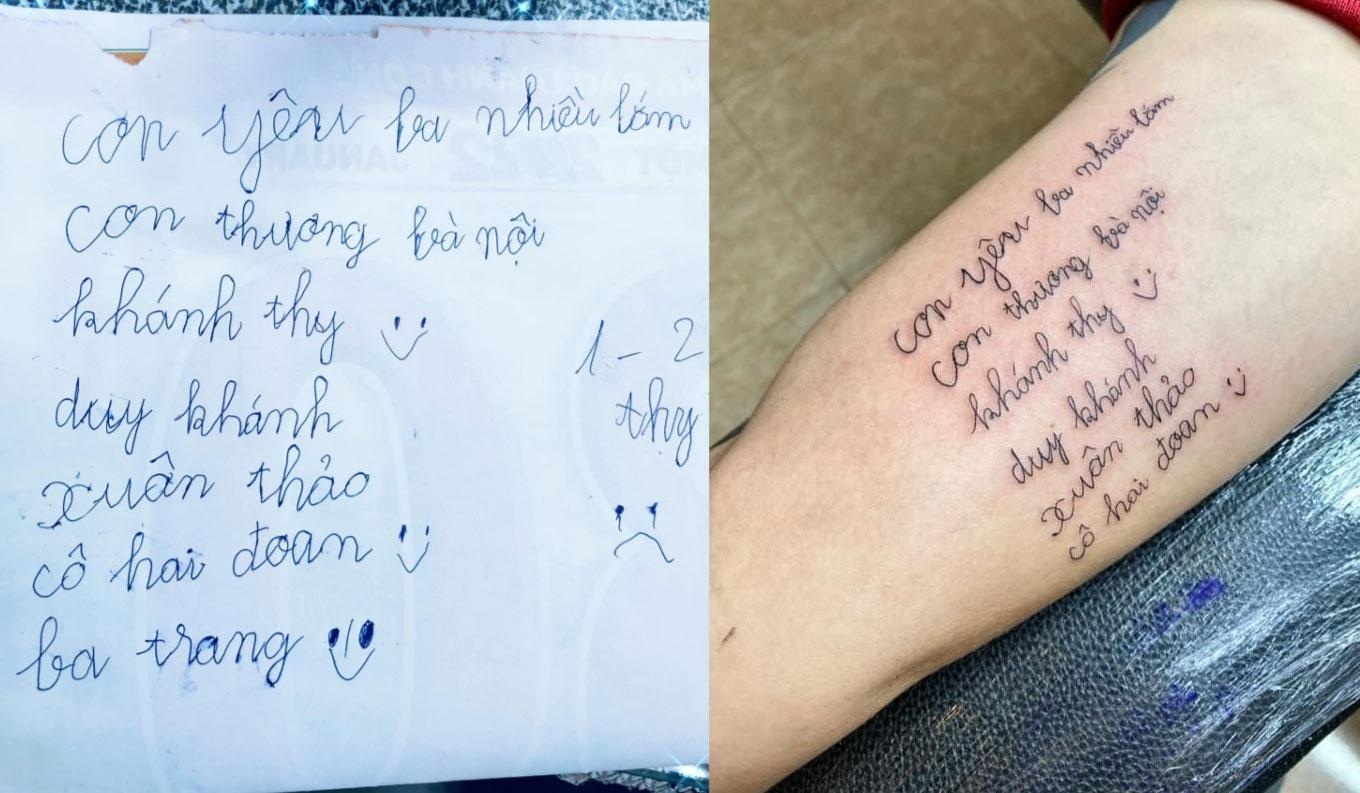 con yêu ba nhiều lắm
con thương bà nội
khánh thy
duy khánh
xuân thảo
cô hai đoan
ba trang
1 - 2
thy
MỘT 2022 JANUAR
con yêu ba nhiều lắm
con thương bà nội
khánh thy
duy khánh
xuân thảo
cô hai đoan